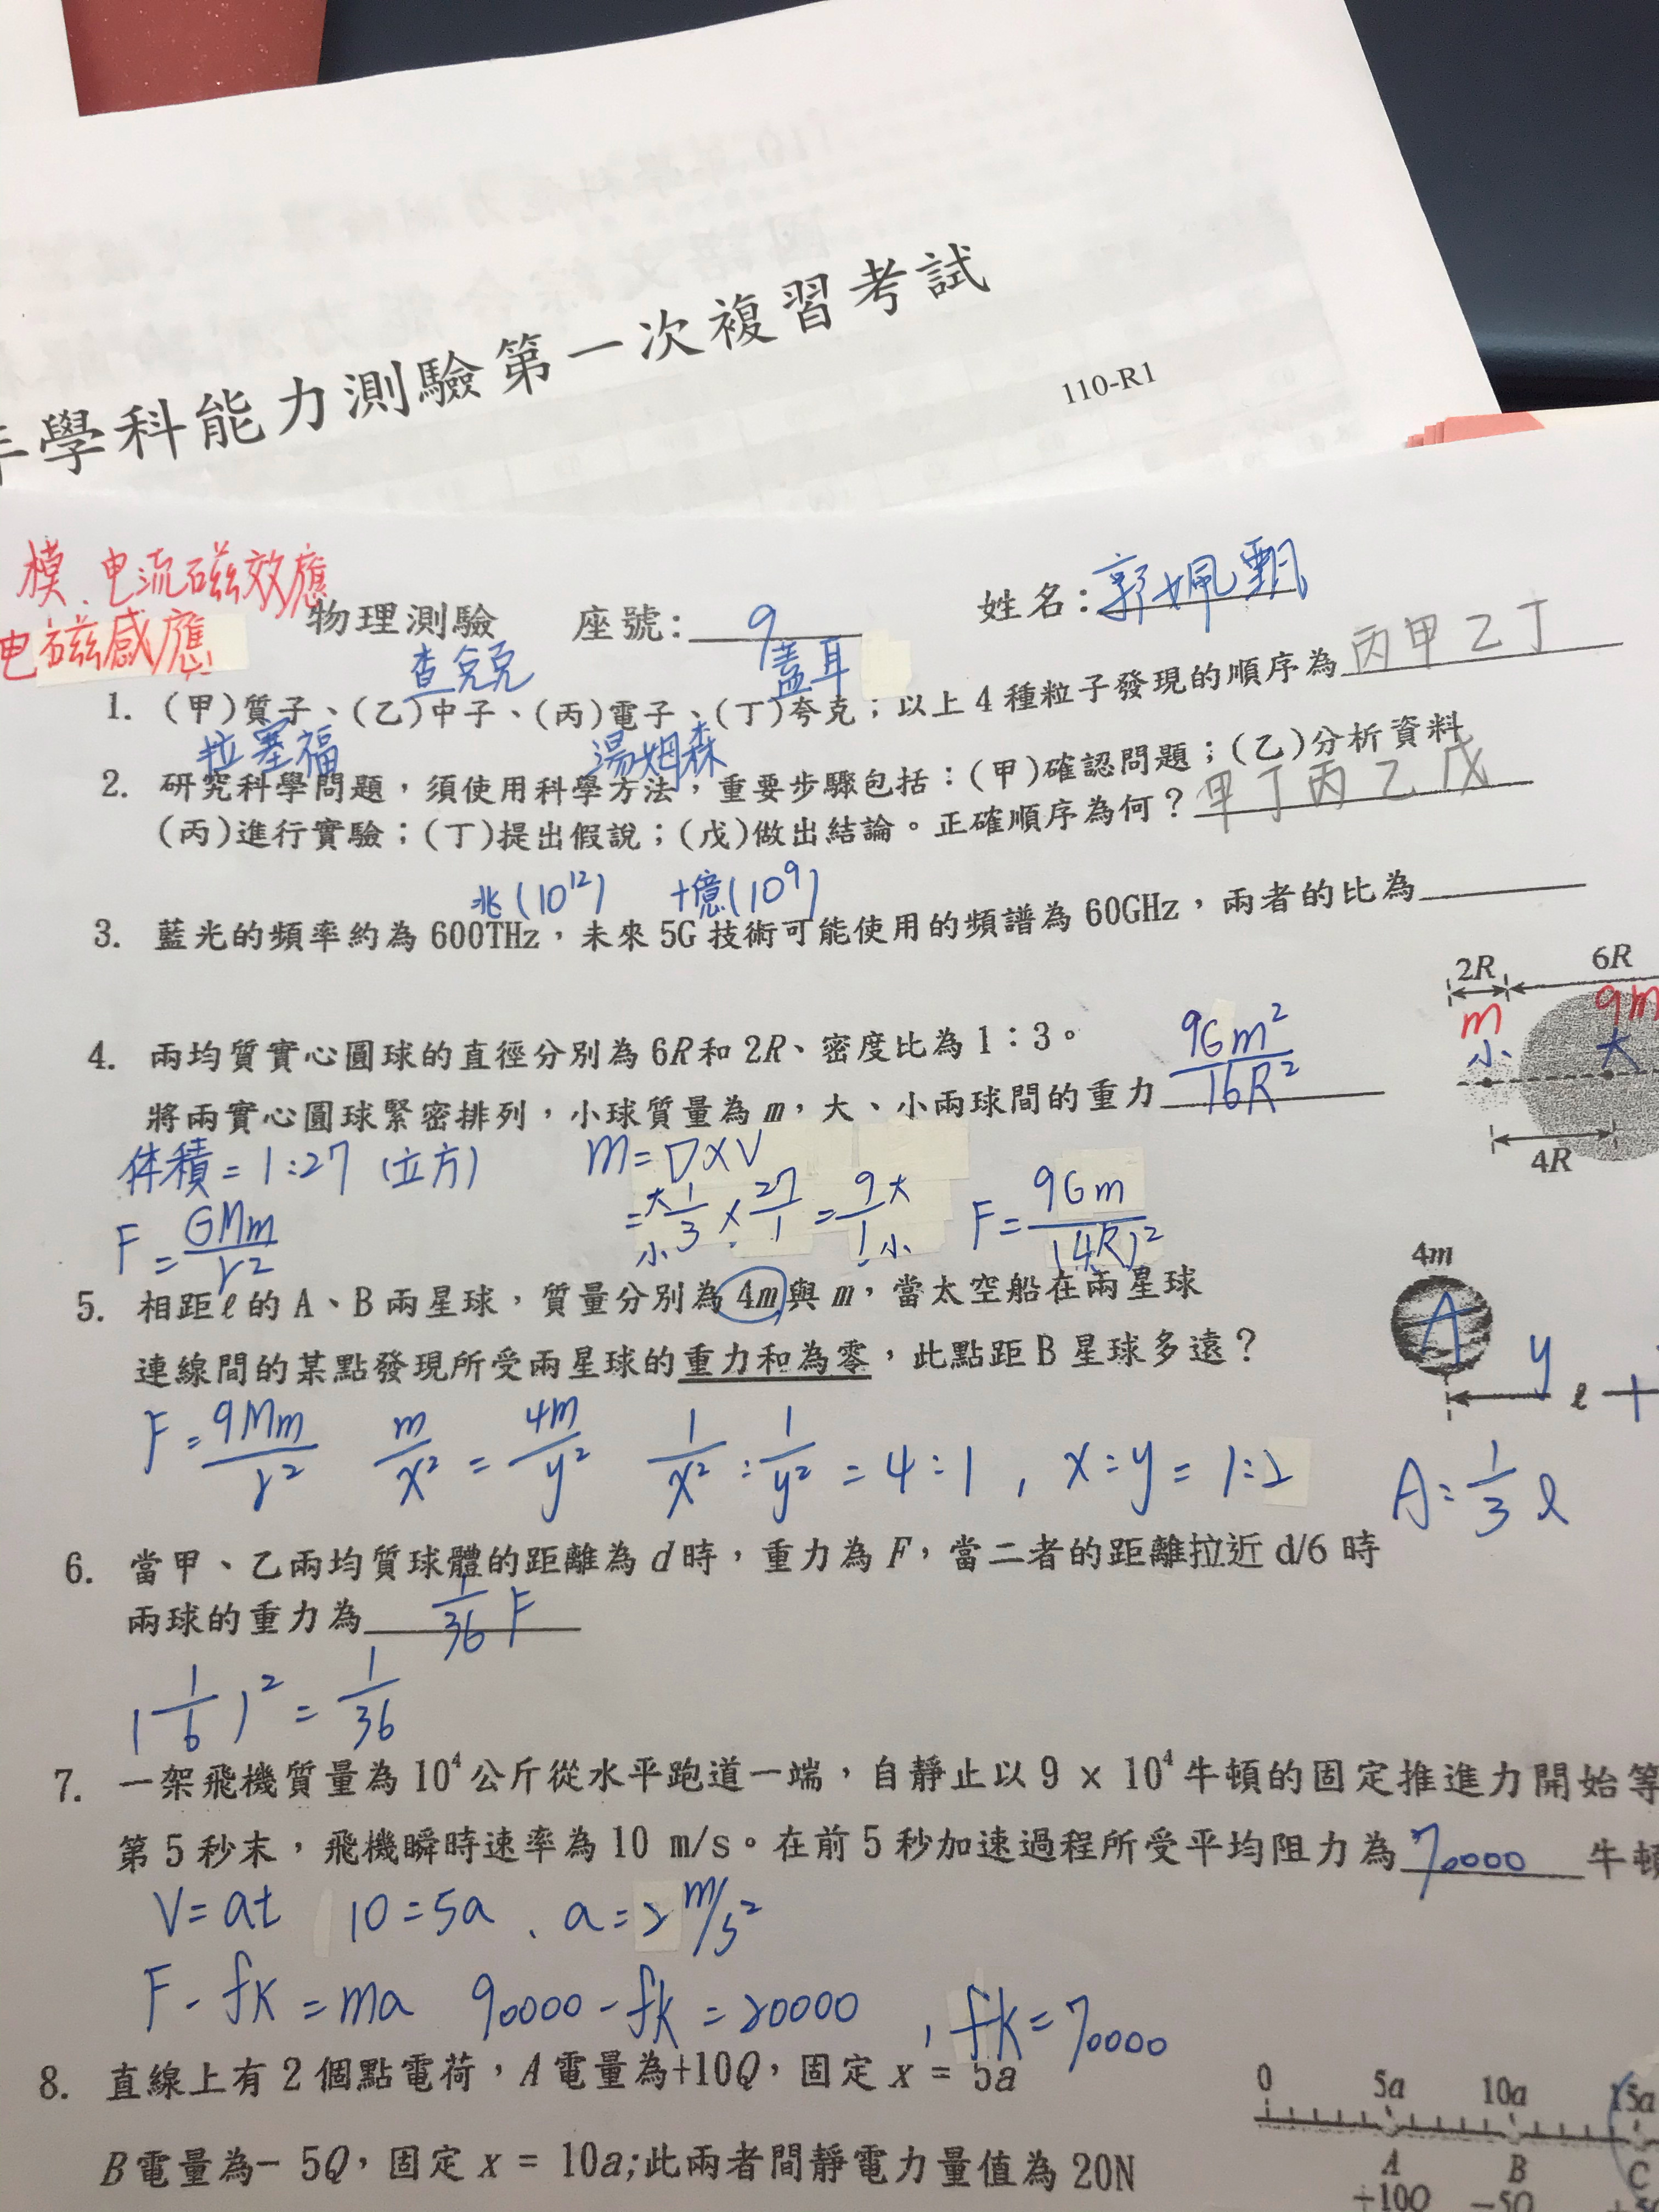 學科能力測驗第一次複習考試
110-R1
模、电流磁效應
电磁感應
物理測� 座號: 9 姓名:郭姵甄
查兌克 蓋耳
1. (甲)質子、(乙)中子、(丙)電子、(丁)夸克；以上4種粒子發現的順序為 丙甲乙丁
拉塞福 湯姆森
2. 研究科學問題，須使用科學方法，重要步驟包括：(甲)確認問題；(乙)分析資料
(丙)進行實驗；(丁)提出假說；(戊)做出結論。正確順序為何？甲丁丙乙戊
兆(10¹²) 十億(10⁹)
3. 藍光的頻率約為600THz，未來5G技術可能使用的頻譜為60GHz，兩者的比為
2R 6R
m 9m
小 大
4R
4. 兩均質實心圓球的直徑分別為6R和2R、密度比為1：3。
將兩實心圓球緊密排列，小球質量為m，大、小兩球間的重力 9Gm²/16R²
体積=1:27 (立方) m=D×V
F=GMm/r² =大1/小3×27/1=9大/1小 F=9Gm/(4R)²
5. 相距ℓ的A、B兩星球，質量分別為4m與m，當太空船在兩星球
連線間的某點發現所受兩星球的重力和為零，此點距B星球多遠？
4m
A
y
ℓ
F=9Mm/r² m/x²=4m/y² 1/x²:1/y²=4:1, x:y=1:2 A=1/3 ℓ
6. 當甲、乙兩均質球體的距離為d時，重力為F，當二者的距離拉近d/6時
兩球的重力為 1/36 F
(1/6)²=1/36
7. 一架飛機質量為10⁴公斤從水平跑道一端，自靜止以9 x 10⁴牛頓的固定推進力開始等
第5秒末，飛機瞬時速率為10 m/s。在前5秒加速過程所受平均阻力為 70000 牛頓
V=at 10=5a、a=2m/s²
F-fk=ma 90000-fk=20000, fk=70000
8. 直線上有2個點電荷，A電量為+10Q，固定x = 5a
B電量為- 5Q，固定x = 10a;此兩者間靜電力量值為20N
0 5a 10a 15a
A B C
+10Q -5Q